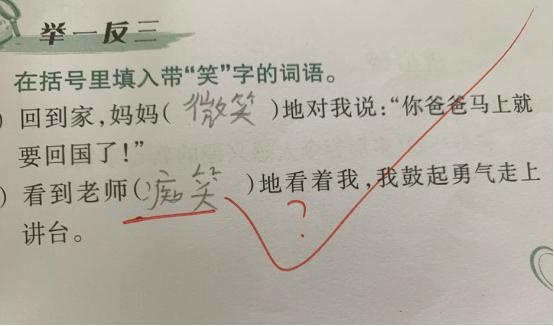 举一反三
在括号里填入带“笑”字的词语。
)回到家,妈妈( 微笑 )地对我说:“你爸爸马上就
要回国了!”
)看到老师(痴笑 )地看着我,我鼓起勇气走上
讲台。
?